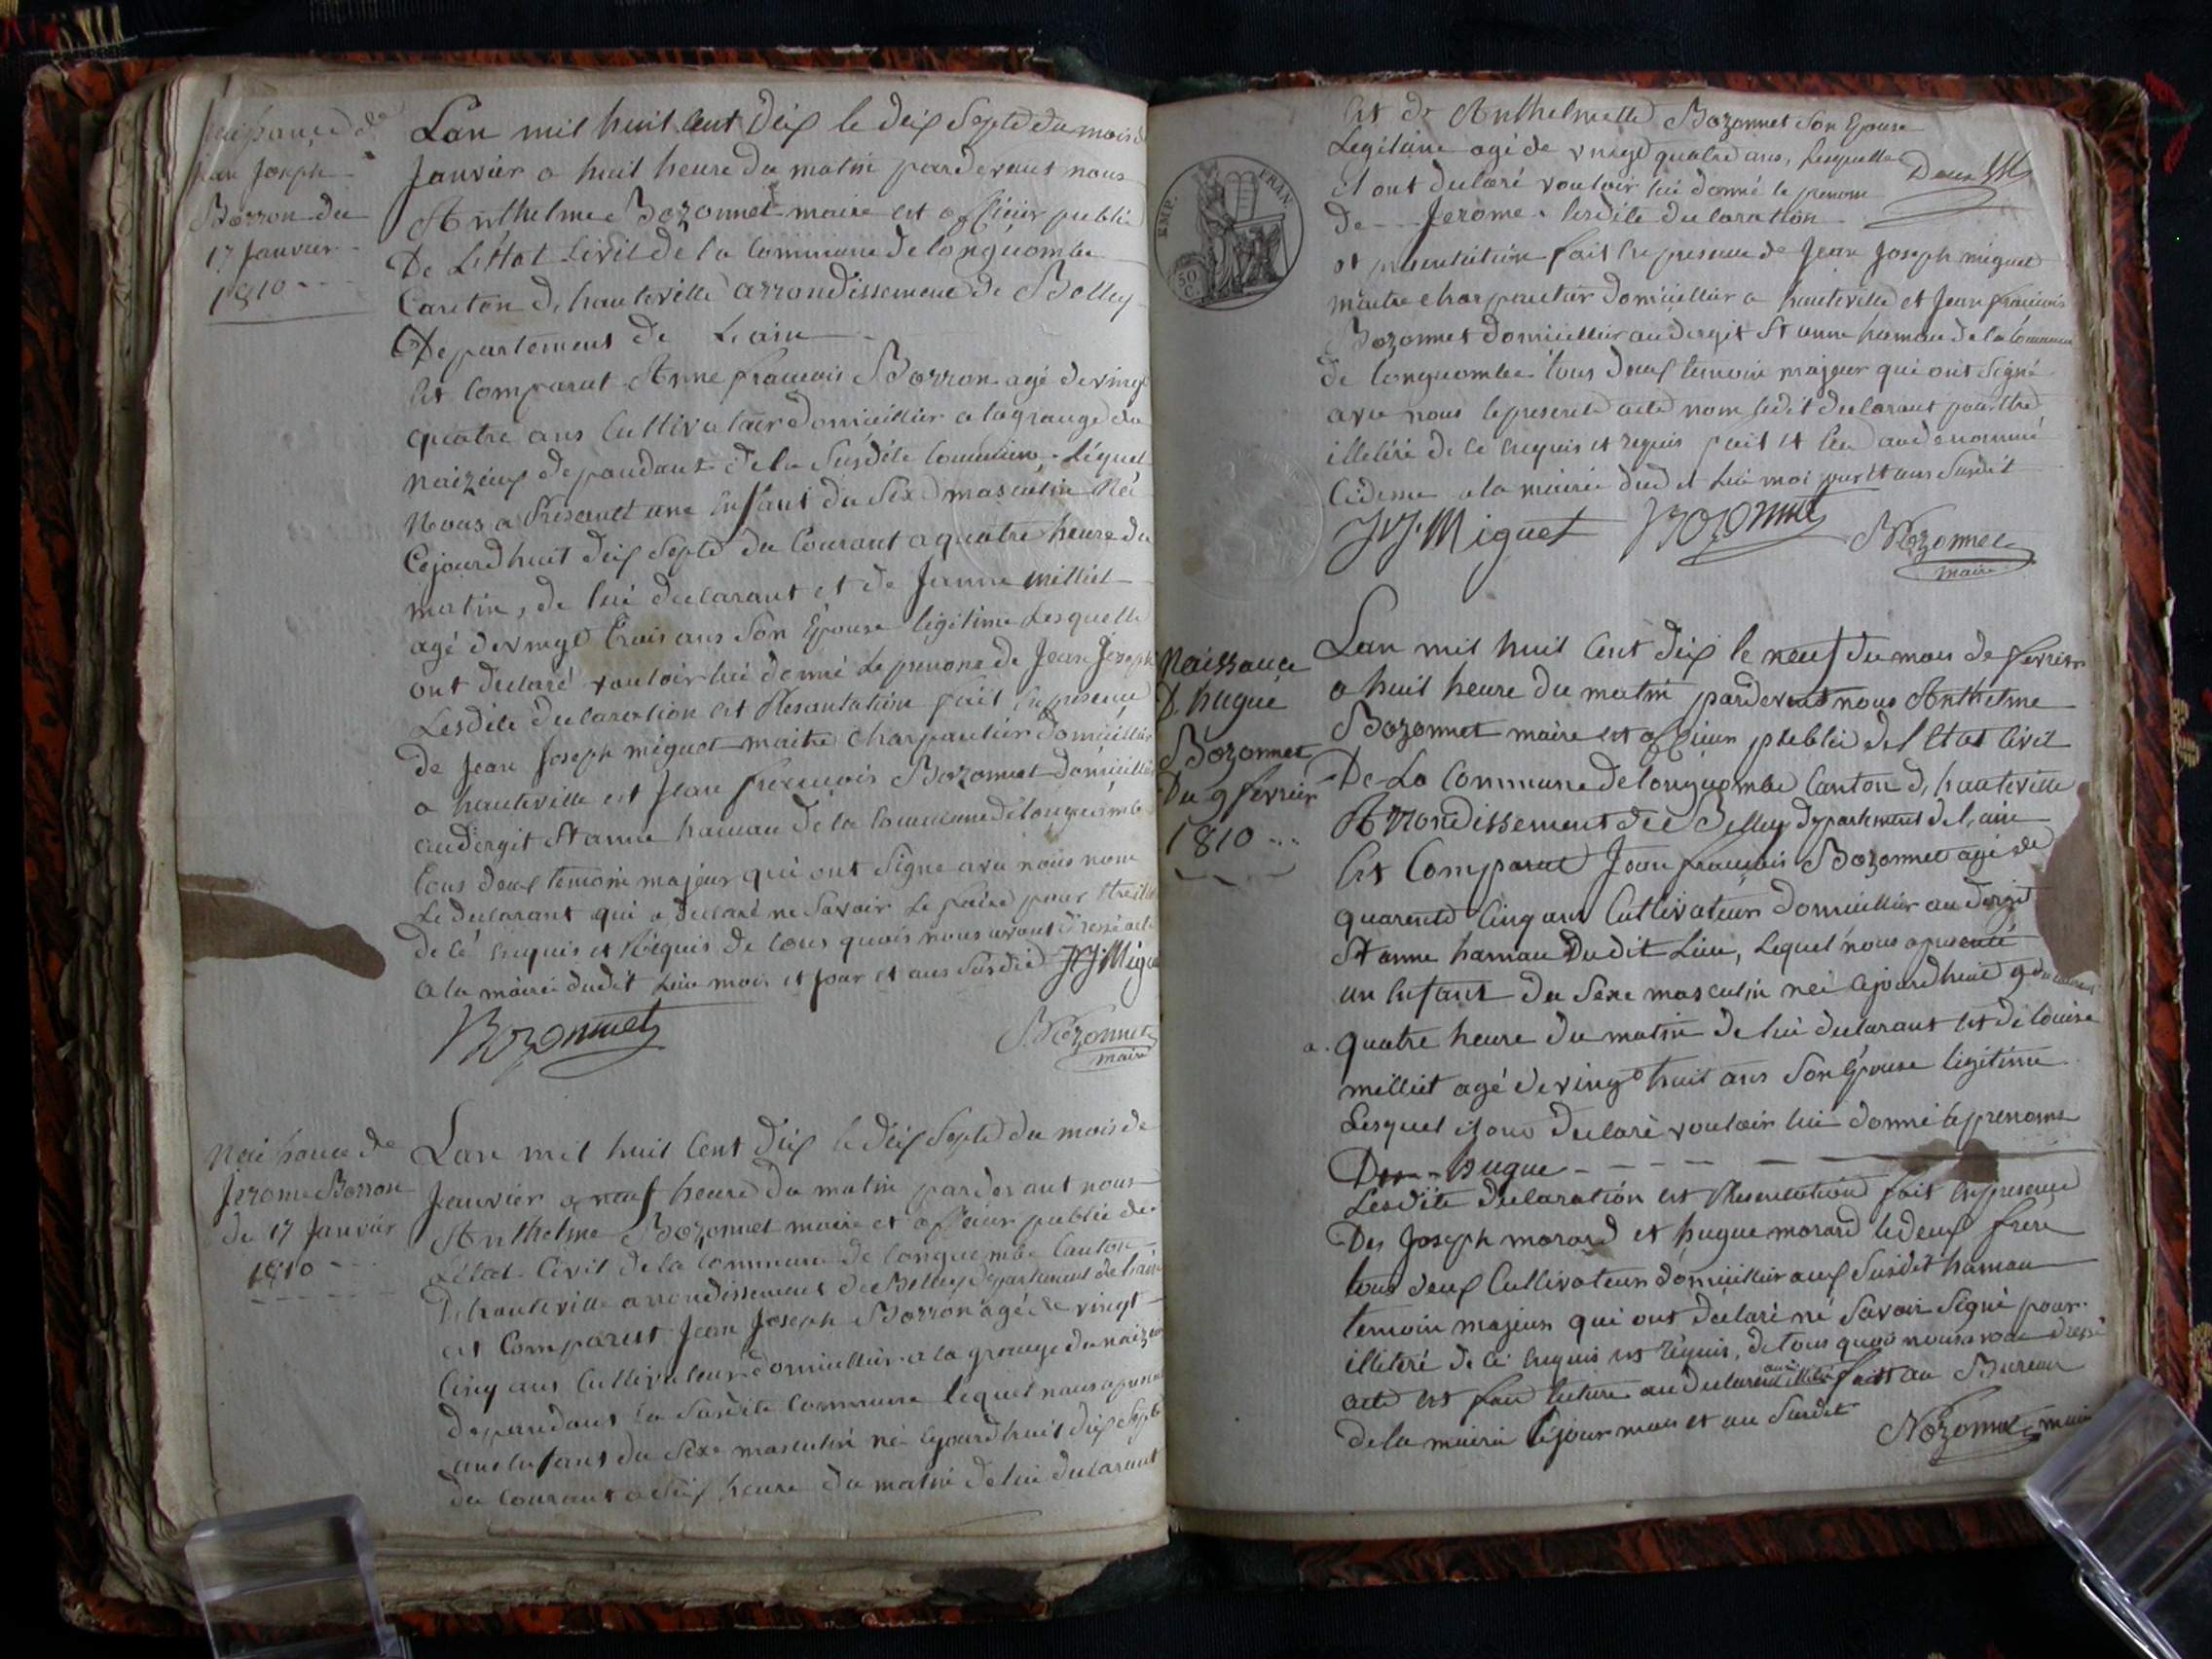 Naissance de
Jean Joseph
Borron du
17 Janvier
1810
Lan mil huit Cent Dix le Dix Septe du mois de
Janvier a huit heure du matin pardevant nous
Anthelme Bozonnet maire et officier public
De L'Etat Civil de la Commune de longecombe
Canton D, hauteville arrondissement de Belley
Departement de Lain
Est Comparut Anne francois Borron agé de vingt
quatre ans Cultivateur domicillier a la grange du
naizeux dependant de la Susdite Commune. Lequel
Nous a Presentet une Enfant du Sexe masculin Né
Cejourdhuit Dix Septe du Courant a quatre heure du
matin, de lui declarant et de Jeanne milliet
agé de vingt trois ans Son Epouse legitime Lesquelle
ont declaré vouloir lui donné Le prenome de Jean Joseph
Lesdite declaration est Presantation fait En presence
de Jean Joseph miguet maitre charpantier domicillier
a hauteville est Jean francois Bozonnet domicillier
au dergit St anne hamau de la Commune de longecombe
tous deux temoin majeur qui ont Signe avec nous nom
Le declarant qui a declaré ne Savoir Le faire pour Etre
de cé Enquis et Réquis de tous quois nous avont dressé acte
a la mairie dudit Lieu mois et jour et ans Susdit JJ. Miguet
Bozonnet
Bozonnet
maire
Naissance de
Jerome Borron
du 17 Janvier
1810
Lan mil huit Cent Dix le Dix Septe du mois de
Janvier a neuf heure du matin pardevant nous
Anthelme Bozonnet maire et officier public de
L'Etat Civil de la Commune de longecombe Canton
D, hauteville arrondissement de Belley departement de Lain
est Comparut Jean Joseph Borron agé de vingt
Cinq ans Cultivateur domicillier a la grange du naizeux
dependant la Susdite Commune lequel nous a presenté
une Enfant du Sexe masculin né Cejourdhuit dix Septe
du Courant a Six heure du matin de lui declarant
Est de Anthelmette Bozonnet Son Epouse
Legitime agé de vingt quatre ans, Lesquelle
Et ont declaré vouloir lui donné le prenome
de Jerome. Lesdite declaration
et presentation fait En presence de Jean Joseph miguet
maitre charpantier domicillier a hauteville et Jean francois
Bozonnet domicillier au dergit St anne hamau de la Commune
de longecombe tous deux temoin majeur qui ont Signé
avec nous le presente acte nom ledit declarant pour Etre
illeteré de Ce Enquis et requis fait et leu au denommé
Cidessu a la mairie dud it Lieu moi jour Et ans Susdit
JJ. Miguet Bozonnet Bozonnet
maire
EMP. FRAN.
50
C.
Naissance
D, hugue
Bozonnet
Du 9 fevrier
1810
Lan mil huit Cent Dix le neuf du mois de fevrier
a huit heure du matin pardevant nous Anthelme
Bozonnet maire est officier publici de l Etat Civil
De La Commune de longecombe Canton D, hauteville
Arrondissement de Belley departement de L, ain
Est Comparut Jean francois Bozonnet agé de
quarente Cinq ans Cultivateur domicillier au dergit
St anne hamau Dudit Lieu, Lequel nous a presenté
un Enfant du Sexe masculin né Cejourdhuit 9 du courant
a. quatre heure du matin de lui declarant est de Louise
milliet agé de vingt huit ans Son Epouse legitime
Lesquel ont declaré vouloir lui donné le prenome
De hugue
Lesdite declaration est Presentation fait En presence
Des Joseph morard et hugue morard le deux frere
tous deux Cultivateur domicillier aux Susdit hamau
temoin majeur qui ont declaré né Savoir Signé pour
illeteré de Cé Enquis est Réquis, de tous quoi nous avont dressé
acte est fait lecture au declarant fait au Bureau
de la mairie le jour mois et an Susdit Bozonnet maire